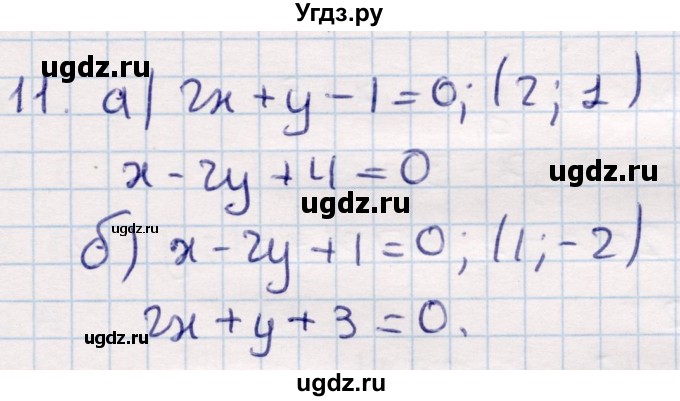 Угдз.ру
ugdz.ru
11. а) 2x + y - 1 = 0; (2; 1)
ugdz.ru
x - 2y + 4 = 0
ugdz.ru
ugdz.ru
б) x - 2y + 1 = 0; (1; -2)
ugdz.ru
2x + y + 3 = 0.
ugdz.ru
ugdz.ru